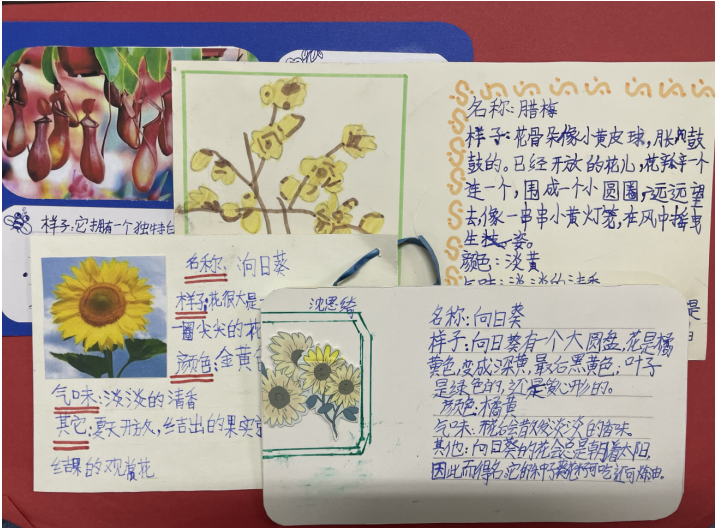 名称:腊梅
样子:花骨朵像小黄皮球,胀鼓
鼓的。已经开放的花儿,花瓣一个
连一个,围成一个小圆圈,远远望
去,像一串串小黄灯笼,在风中摇曳
生姿。
颜色:淡黄
气味:淡淡的清香
样子:它拥有一个独特
名称:向日葵
样子:花很大是一
圈尖尖的花
颜色:金黄
气味:淡淡的清香
其它:夏天开放,结出的果实
结果的观赏花
沈思绮
名称:向日葵
样子:向日葵有一个大圆盘,花是橘
黄色,变成深黄,最后黑黄色;叶子
是绿色的,是心形的。
颜色:橘黄
气味:散发淡淡的香味。
其他:向日葵的花会总是朝着太阳,
因此而得名。它的种子可吃还可炼油。